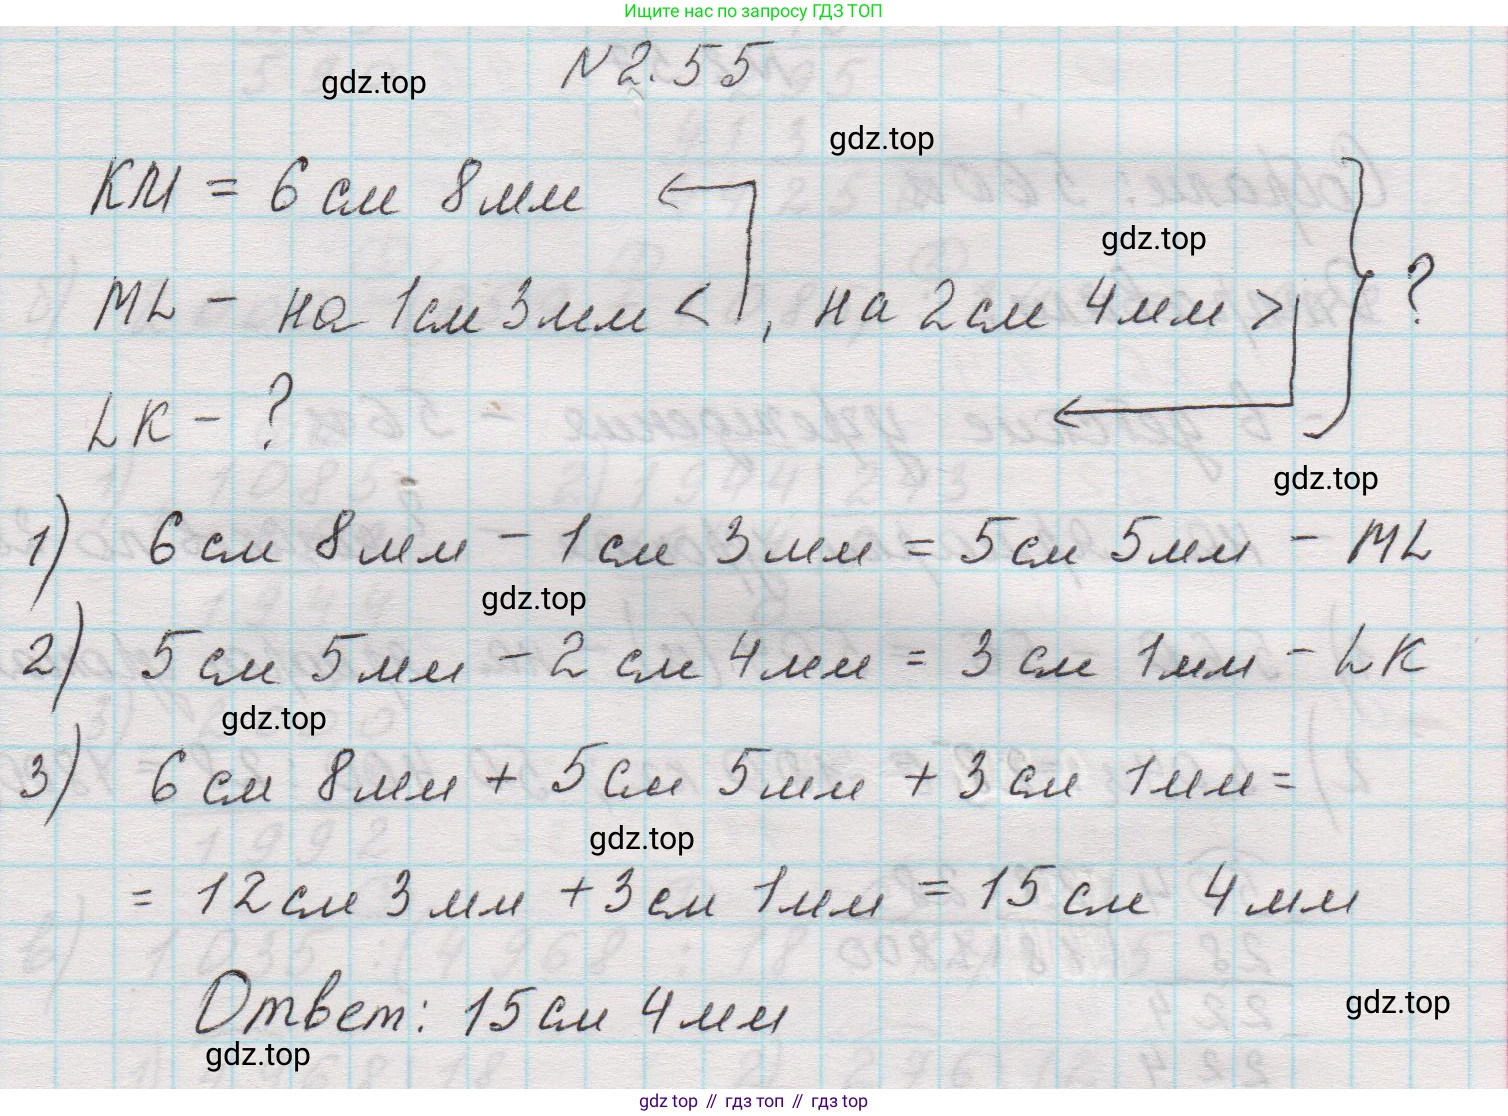 Ищите нас по запросу ГДЗ ТОП
N 2.55
gdz.top
gdz.top
КМ = 6 см 8 мм
gdz.top
ML - на 1 см 3 мм <, на 2 см 4 мм > ?
LK - ?
gdz.top
1) 6 см 8 мм - 1 см 3 мм = 5 см 5 мм - ML
gdz.top
2) 5 см 5 мм - 2 см 4 мм = 3 см 1 мм - LK
gdz.top
3) 6 см 8 мм + 5 см 5 мм + 3 см 1 мм =
gdz.top
= 12 см 3 мм + 3 см 1 мм = 15 см 4 мм
Ответ: 15 см 4 мм
gdz.top
gdz.top
gdz top // гдз топ // гдз top